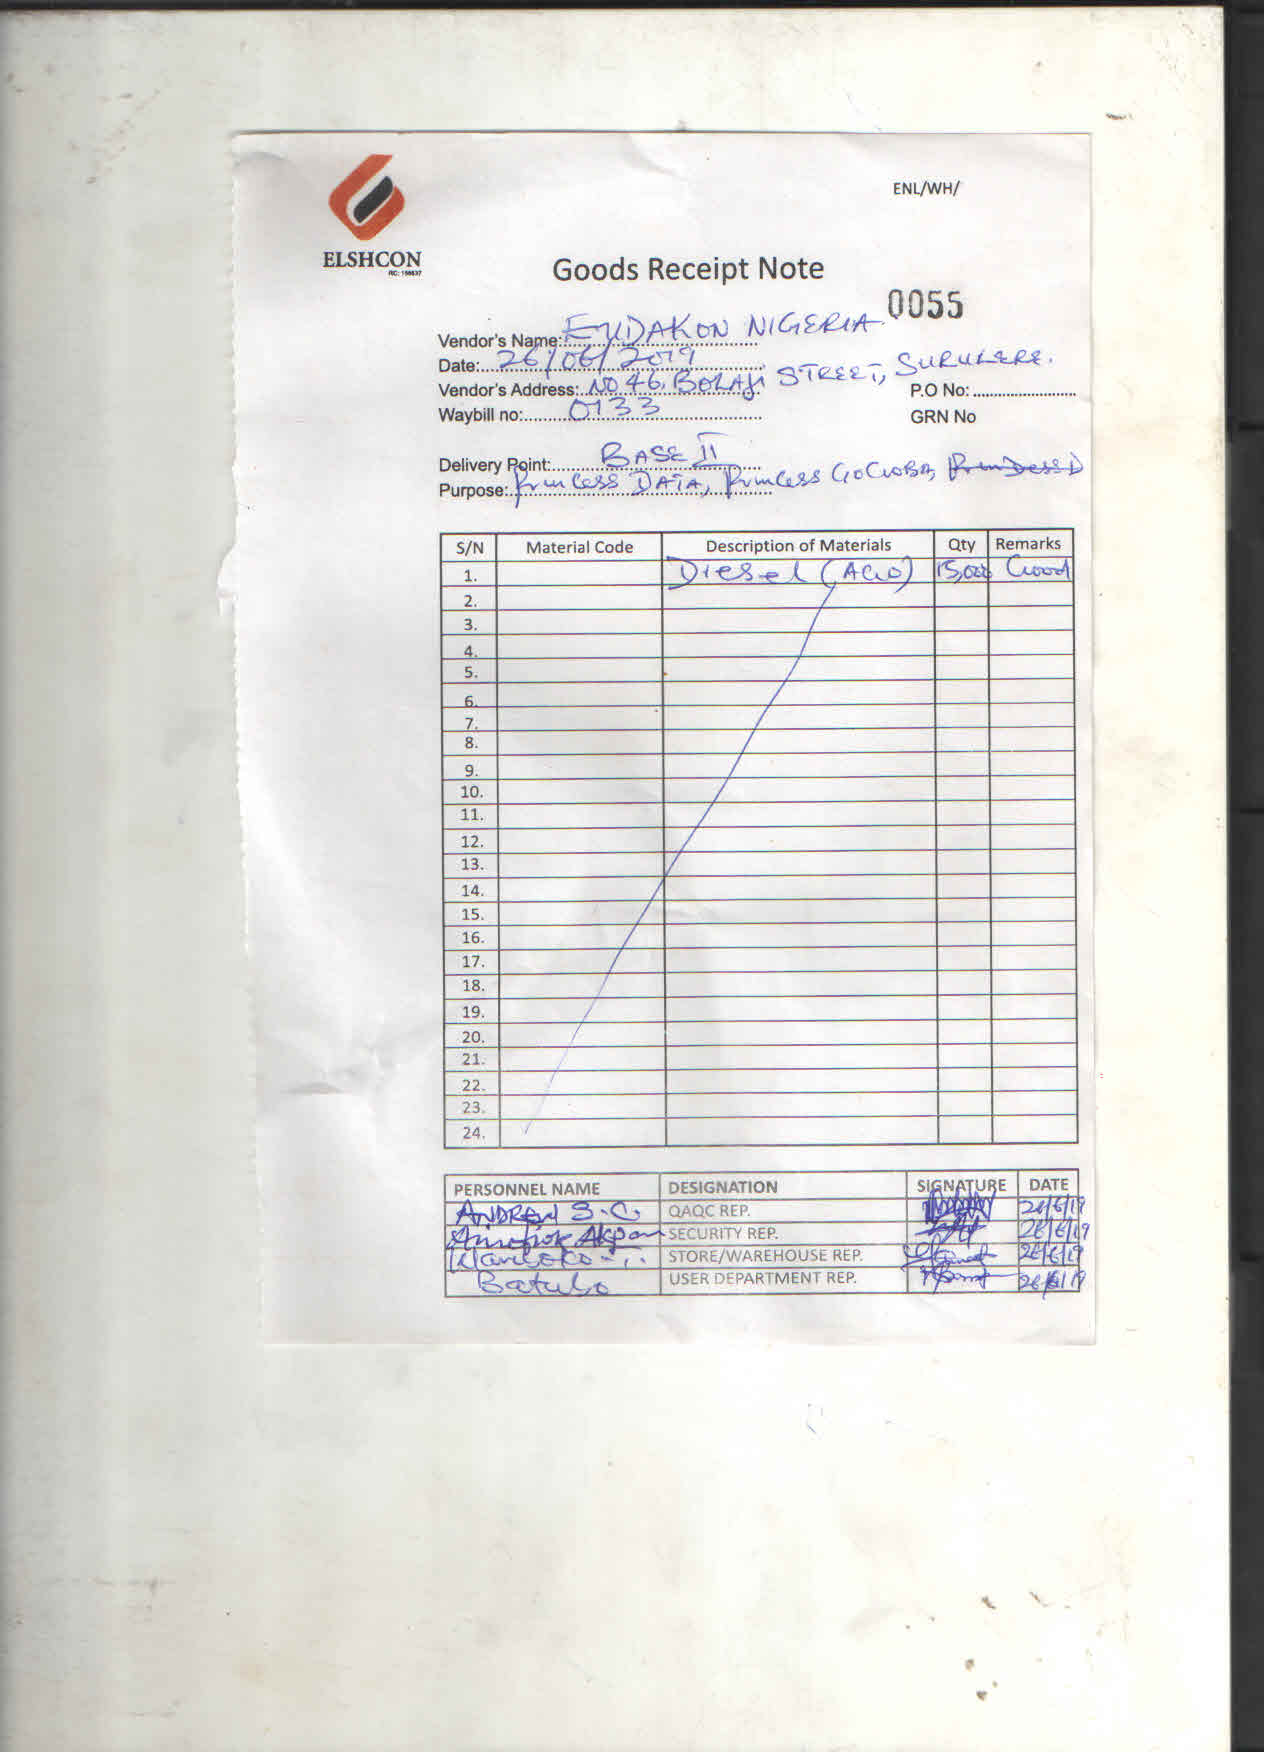 ENL/WH/
ELSHCON
RC: 156637
Goods Receipt Note
0055
Vendor's Name: EYDAKON NIGERIA
Date: 26/06/2019
Vendor's Address: NO 46, BOLAJI STREET, SURULERE.
P.O No:
Waybill no: 0133
GRN No
Delivery Point: BASE II
Purpose: Princess DATA, Princess GOGOBA,
S/N Material Code Description of Materials Qty Remarks
1. Diesel (AGO) 15,000 Good
2.
3.
4.
5.
6.
7.
8.
9.
10.
11.
12.
13.
14.
15.
16.
17.
18.
19.
20.
21.
22.
23.
24.
PERSONNEL NAME DESIGNATION SIGNATURE DATE
ANDREW S.C. QAQC REP. 26/6/19
Akpan SECURITY REP. 26/6/19
STORE/WAREHOUSE REP. 26/6/19
Batubo USER DEPARTMENT REP. 26/6/19